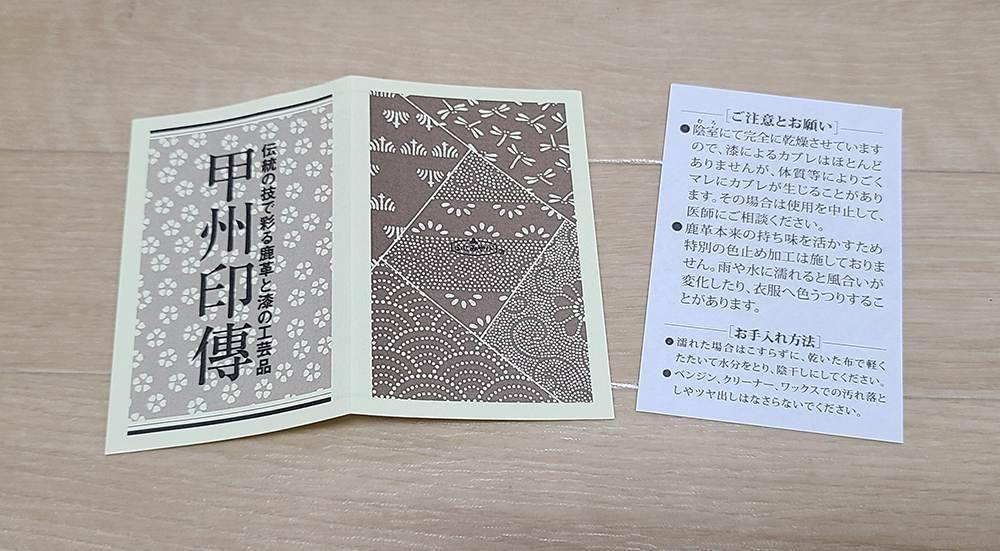 伝統の技で彩る鹿革と漆の工芸品
甲州印傳
[ご注意とお願い]
●陰室にて完全に乾燥させています
ので、漆によるカブレはほとんど
ありませんが、体質等によりごく
マレにカブレが生じることがあり
ます。その場合は使用を中止して、
医師にご相談ください。
●鹿革本来の持ち味を活かすため
特別の色止め加工は施しておりま
せん。雨や水に濡れると風合いが
変化したり、衣服へ色うつりするこ
とがあります。
[お手入れ方法]
●濡れた場合はこすらずに、乾いた布で軽く
たたいて水分をとり、陰干しにしてください。
●ベンジン、クリーナー、ワックスでの汚れ落と
しやツヤ出しはなさらないでください。